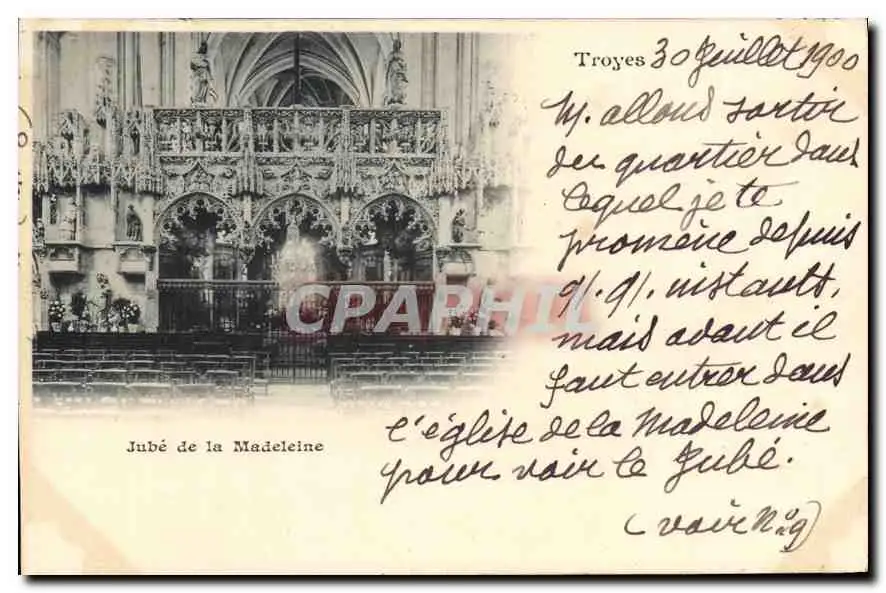 Troyes 30 Juillet 1900
N. allons sortir
du quartier dans
lequel je te
promène depuis
q/. q/. instants,
mais avant il
faut entrer dans
l'église de la Madeleine
pour voir le Jubé.
(voir No 9)
Jubé de la Madeleine
CPARHIL